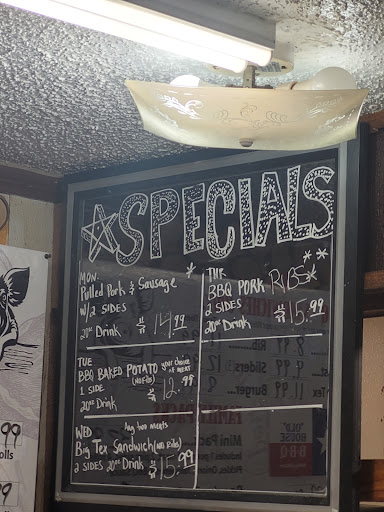 SPECIALS
MON
Pulled Pork & Sausage
w/2 SIDES
20oz Drink 14.99
TUE
BBQ BAKED POTATO your choice of meat
(NO FRIES)
1 SIDE
20oz Drink 12.99
WED Any two meats
Big Tex Sandwich (NO Ribs)
2 SIDES 20oz Drink 15.99
THU
BBQ PORK RIBS
2 SIDES
20oz Drink 15.99
Rib
Sliders
9.99
11.99 Burger
FAMILY PACK
Mini Pack
OLD
HOUSE
BBQ
99
olls
99